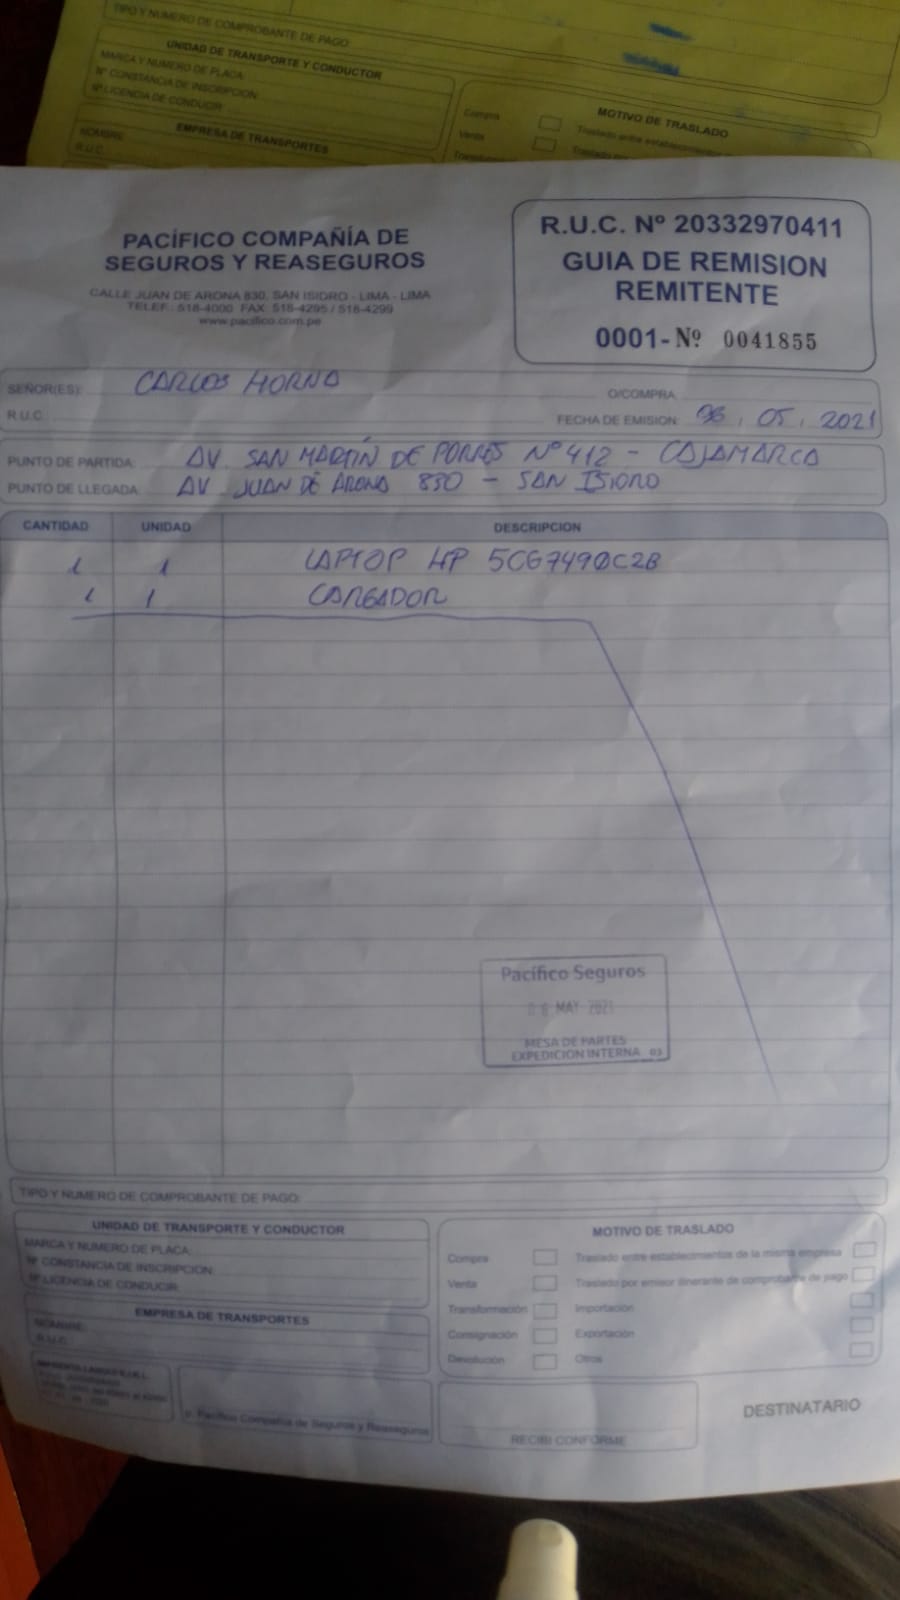 TIPO Y NUMERO DE COMPROBANTE DE PAGO:
UNIDAD DE TRANSPORTE Y CONDUCTOR
MARCA Y NUMERO DE PLACA:
Nº CONSTANCIA DE INSCRIPCION:
Nº LICENCIA DE CONDUCIR:
EMPRESA DE TRANSPORTES
NOMBRE:
R.U.C.
MOTIVO DE TRASLADO
Compra
Venta
Traslado entre establecimientos
PACÍFICO COMPAÑÍA DE
SEGUROS Y REASEGUROS
CALLE JUAN DE ARONA 830, SAN ISIDRO - LIMA - LIMA
TELEF.: 518-4000 FAX: 518-4295 / 518-4299
www.pacifico.com.pe
R.U.C. Nº 20332970411
GUIA DE REMISION
REMITENTE
0001-Nº 0041855
SEÑOR(ES): CARLOS HORNA
O/COMPRA:
R.U.C.
FECHA DE EMISION: 06, 05, 2021
PUNTO DE PARTIDA: AV. SAN MARTÍN DE PORRES Nº 412 - CAJAMARCA
PUNTO DE LLEGADA: AV JUAN DE ARONA 830 - SAN ISIDRO
CANTIDAD UNIDAD DESCRIPCION
1 1 LAPTOP HP 5CG7490C2B
1 1 CARGADOR
Pacífico Seguros
06 MAY 2021
MESA DE PARTES
EXPEDICION INTERNA 03
TIPO Y NUMERO DE COMPROBANTE DE PAGO:
UNIDAD DE TRANSPORTE Y CONDUCTOR
MARCA Y NUMERO DE PLACA:
Nº CONSTANCIA DE INSCRIPCION:
Nº LICENCIA DE CONDUCIR:
EMPRESA DE TRANSPORTES
NOMBRE:
R.U.C.
MOTIVO DE TRASLADO
Compra
Traslado entre establecimientos de la misma empresa
Venta
Traslado por emisor itinerante de comprobante de pago
Transformación
Importación
Consignación
Exportación
Devolución
Otros
p. Pacífico Compañía de Seguros y Reaseguros
RECIBI CONFORME
DESTINATARIO